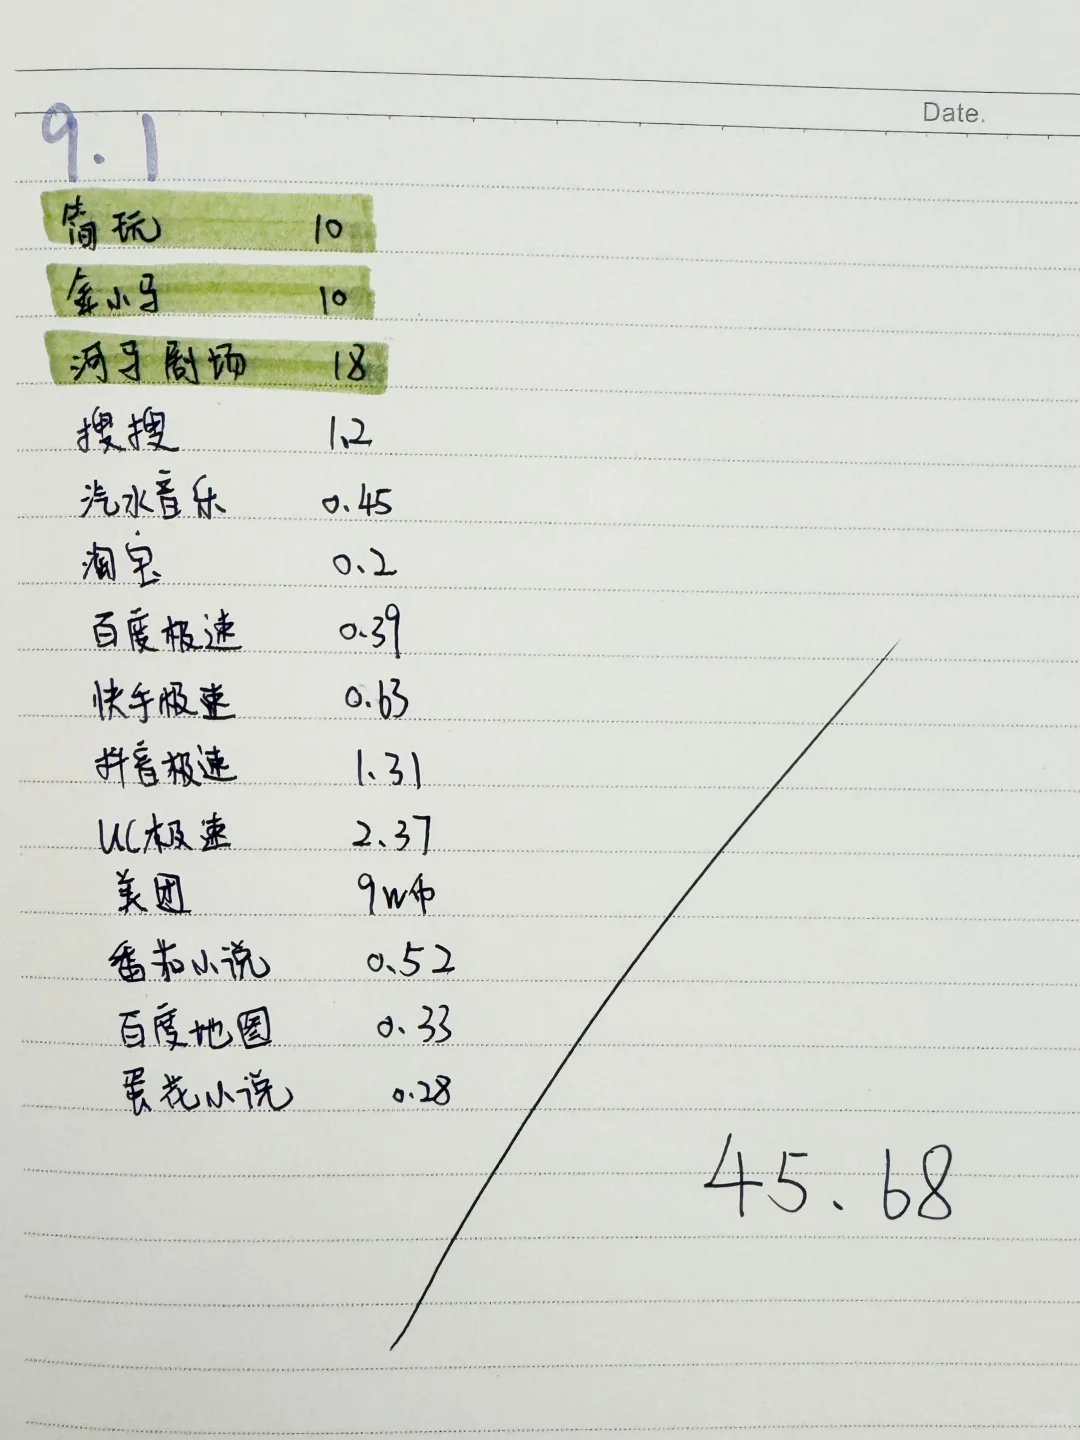 Date.
9.1
简玩 10
金小马 10
河马剧场 18
搜搜 1.2
汽水音乐 0.45
淘宝 0.2
百度极速 0.39
快手极速 0.63
抖音极速 1.31
UC极速 2.37
美团 9w币
番茄小说 0.52
百度地图 0.33
蛋花小说 0.28
45.68